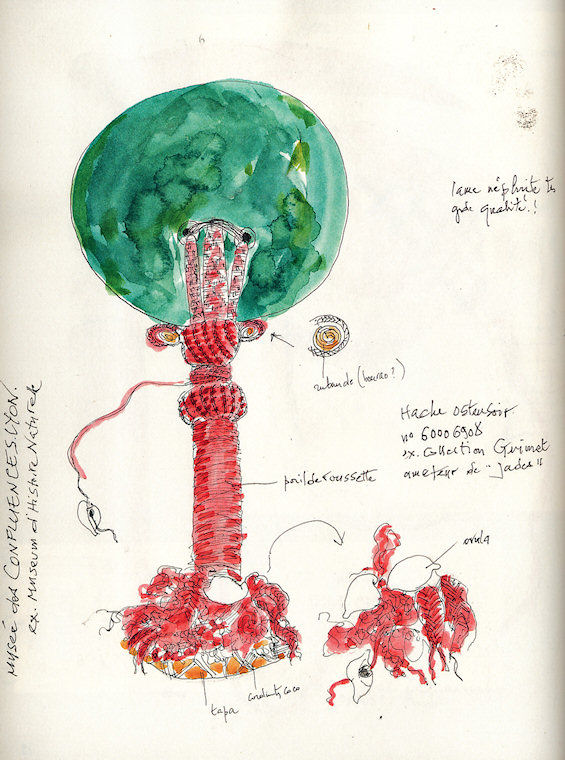 lame néphrite très
gde qualité.!
ruban de (bourao?)
Hache ostensoir
no 60006908
ex. Collection Guimet
amateur de "Jades"
poil de roussette
ovula
tapa
cordelettes coco
MUSÉE des CONFLUENCES. LYON.
ex. Museum d'Histoire Naturelle